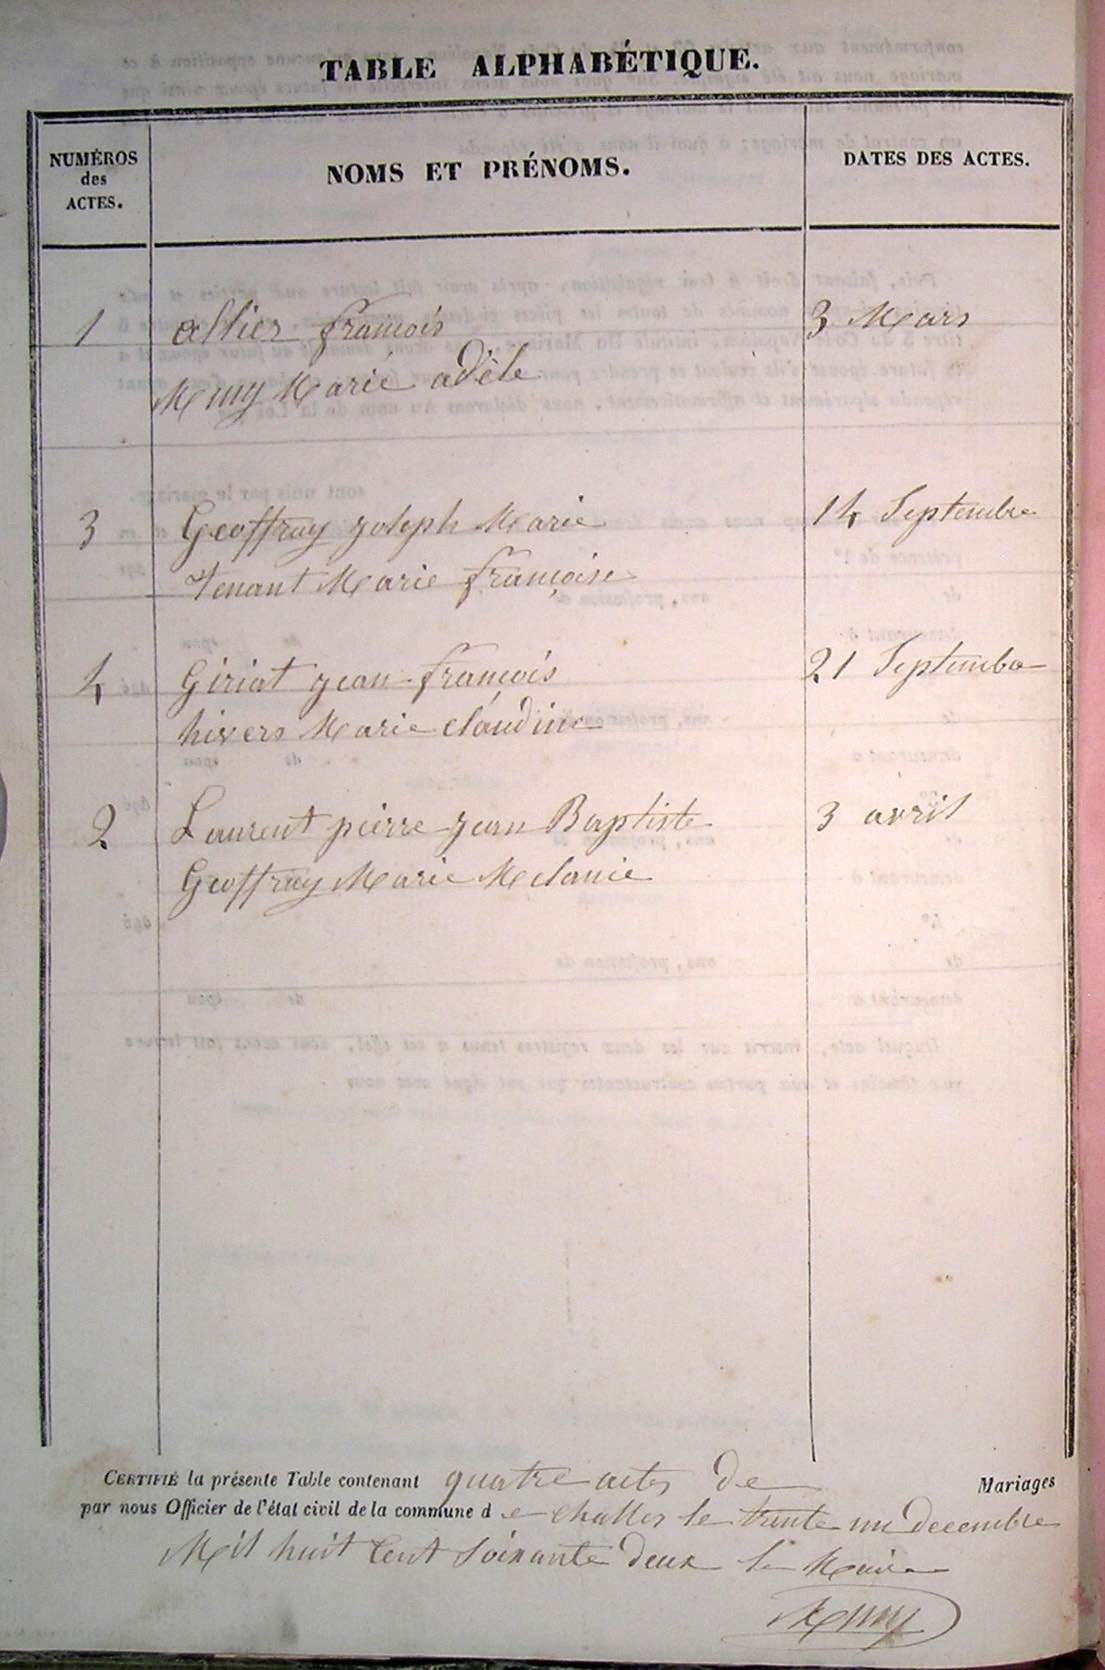 TABLE ALPHABÉTIQUE.
NUMÉROS
des
ACTES.
NOMS ET PRÉNOMS.
DATES DES ACTES.
1 allier françois 3 Mars
Muny Marie adèle
3 Geoffray joseph Marie 14 Septembre
Tenant Marie françoise
4 Giriat jean françois 21 Septembre
hivers Marie claudine
2 Laurent pierre jean Baptiste 3 avril
Geoffray Marie Melanie
CERTIFIÉ la présente Table contenant quatre actes de Mariages
par nous Officier de l'état civil de la commune de challes le trente un decembre
Mil huit Cent soixante deux le Maire
Muny